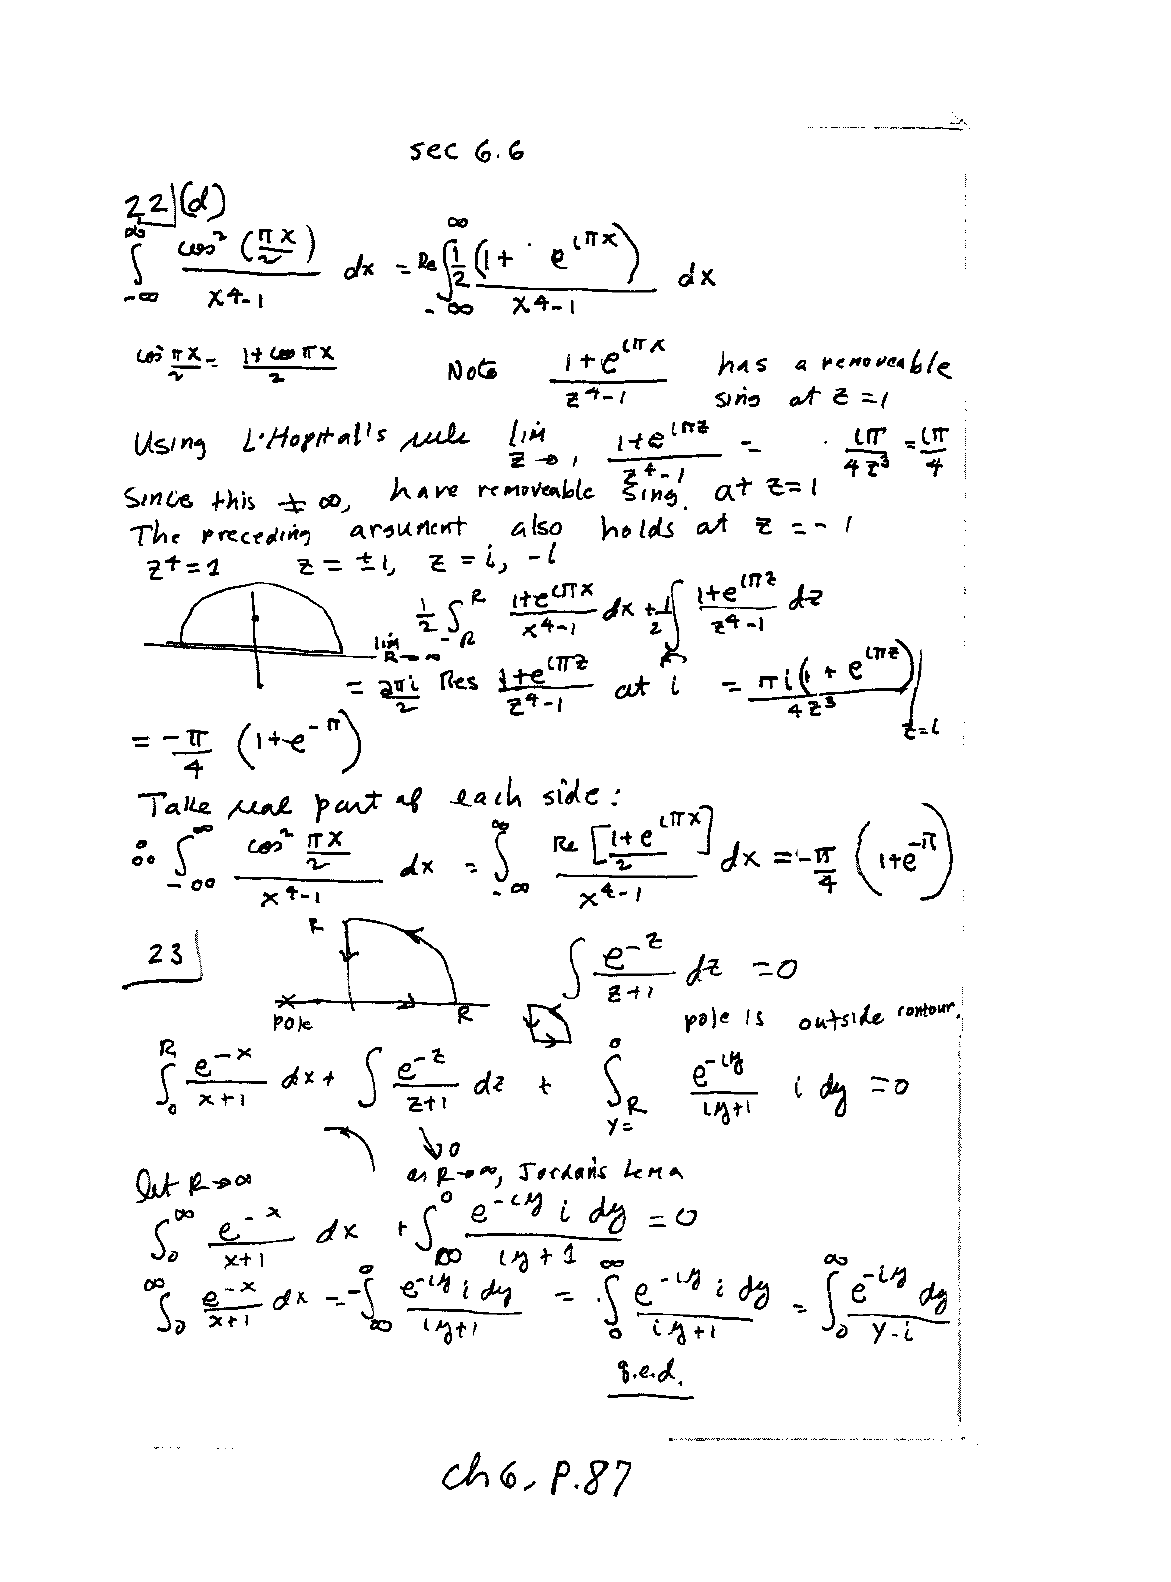 sec 6.6
22 (d)
∫_{-∞}^{∞} cos²(πx/2)/(x⁴-1) dx = Re ∫_{-∞}^{∞} ½(1 + e^{iπx})/(x⁴-1) dx
cos² πx/2 = (1+cos πx)/2 Note (1+e^{iπx})/(z⁴-1) has a removeable
sing at z=1
Using L'Hopital's rule lim_{z→1} (1+e^{iπz})/(z⁴-1) = iπ/(4z³) = iπ/4
Since this ≠ ∞, have removeable sing. at z=1
The preceding argument also holds at z=-1
z⁴=1 z=±1, z=i, -i
lim_{R→∞} ½ ∫_{-R}^{R} (1+e^{iπx})/(x⁴-1) dx + ½ ∫ (1+e^{iπz})/(z⁴-1) dz
= 2πi/2 Res (1+e^{iπz})/(z⁴-1) at i = πi(1+e^{iπz})/(4z³) |_{z=i}
= -π/4 (1+e^{-π})
Take real part of each side:
∴ ∫_{-∞}^{∞} cos² (πx/2)/(x⁴-1) dx = ∫_{-∞}^{∞} Re[(1+e^{iπx})/2]/(x⁴-1) dx = -π/4 (1+e^{-π})
23
R
pole
R
∫ e^{-z}/(z+1) dz = 0
pole is outside contour.
∫_0^R e^{-x}/(x+1) dx + ∫ e^{-z}/(z+1) dz + ∫_{y=R}^0 e^{-iy}/(iy+1) i dy = 0
↓0
let R→∞ as R→∞, Jordan's Lema
∫_0^∞ e^{-x}/(x+1) dx + ∫_∞^0 e^{-iy} i dy/(iy+1) = 0
∫_0^∞ e^{-x}/(x+1) dx = -∫_∞^0 e^{-iy} i dy/(iy+1) = ∫_0^∞ e^{-iy} i dy/(iy+1) = ∫_0^∞ e^{-iy} dy/(y-i)
q.e.d.
ch 6, P.87